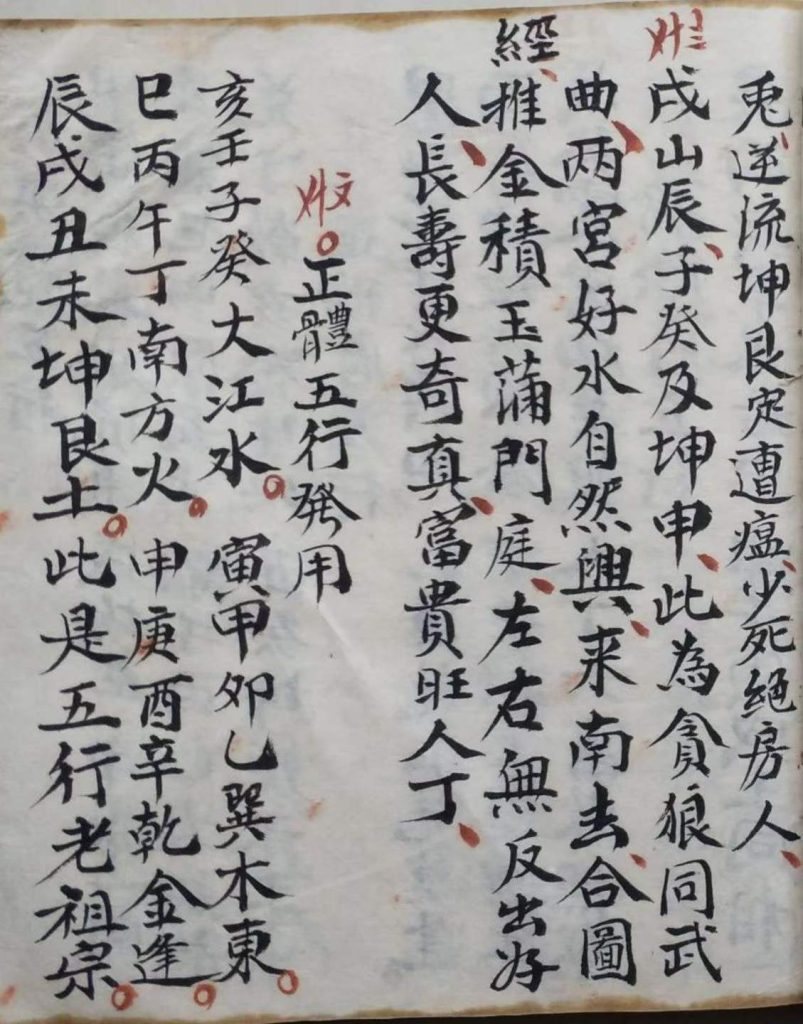 兎逆流坤艮定遭瘟少死絕房人
戌山辰子癸及坤申此為貪狼同武
曲两宮好水自然興来南去合圖
經推金積玉蒲門庭左右無反出好
人長壽更奇真富貴旺人丁
正體五行發用
亥壬子癸大江水。寅甲卯乙巽木東。
巳丙午丁南方火。申庚酉辛乾金逢。
辰戌丑未坤艮土。此是五行老祖宗。